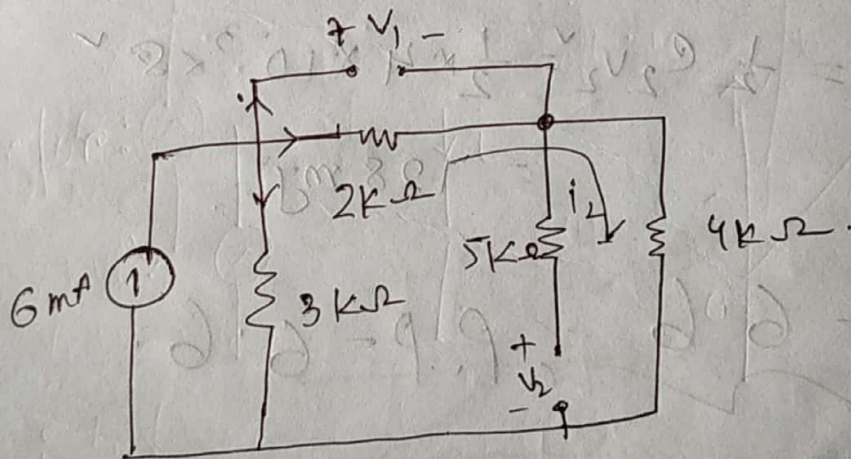 + V₁ -
2KΩ
i₂
5KΩ
4KΩ
6mA
3KΩ
+
V₂
-